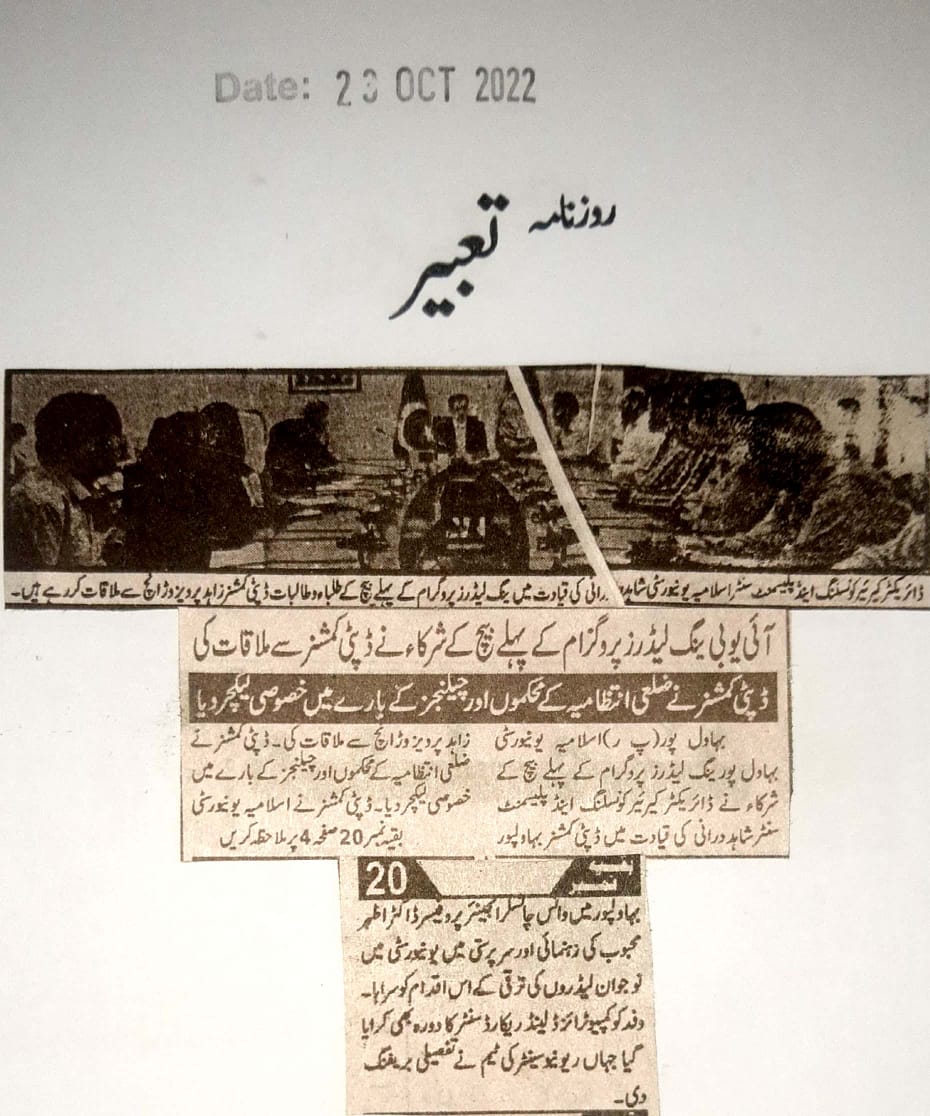 Date: 23 OCT 2022
روزنامہ
تعبیر
ڈائریکٹر کیرئیر کونسلنگ اینڈ پلیسمنٹ سنٹر اسلامیہ یونیورسٹی شاہد رانی کی قیادت میں ینگ لیڈرز پروگرام کے پہلے بیچ کے طلباء و طالبات ڈپٹی کمشنر زاہد پرویز وڑائچ سے ملاقات کر رہے ہیں۔
آئی یو بی ینگ لیڈرز پروگرام کے پہلے بیچ کے شرکاء نے ڈپٹی کمشنر سے ملاقات کی
ڈپٹی کمشنر نے ضلعی انتظامیہ کے محکموں اور چیلنجز کے بارے میں خصوصی لیکچر دیا
بہاول پور (پ ر) اسلامیہ یونیورسٹی
بہاول پور ینگ لیڈرز پروگرام کے پہلے بیچ کے
شرکاء نے ڈائریکٹر کیرئیر کونسلنگ اینڈ پلیسمنٹ
سنٹر شاہد درانی کی قیادت میں ڈپٹی کمشنر بہاولپور
زاہد پرویز وڑائچ سے ملاقات کی۔ ڈپٹی کمشنر نے
ضلعی انتظامیہ کے محکموں اور چیلنجز کے بارے میں
خصوصی لیکچر دیا۔ ڈپٹی کمشنر نے اسلامیہ یونیورسٹی
بقیہ نمبر 20 صفحہ 4 پر ملاحظہ کریں
بقیہ نمبر 20
بہاولپور میں وائس چانسلر انجینئر پروفیسر ڈاکٹر اطہر
محبوب کی رہنمائی اور سرپرستی میں یونیورسٹی میں
نوجوان لیڈروں کی ترقی کے اس اقدام کو سراہا۔
وفد کو کمپیوٹرائزڈ لینڈ ریکارڈ سنٹر کا دورہ بھی کرایا
گیا جہاں ریونیو سینٹر کی ٹیم نے تفصیلی بریفنگ
دی۔